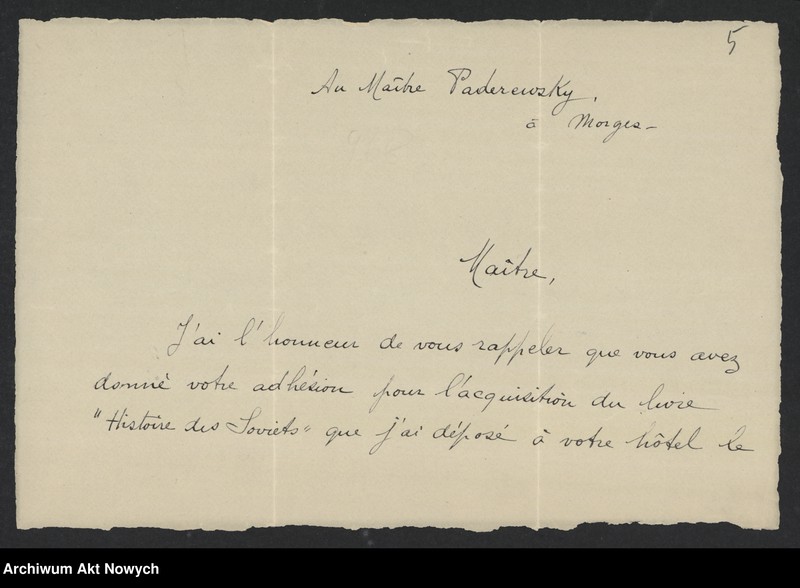 5
Au Maître Paderewsky,
à Morges -
Maître,
J'ai l'honneur de vous rappeler que vous avez
donné votre adhésion pour l'acquisition du livre
"Histoire des Soviets" que j'ai déposé à votre hôtel le
Archiwum Akt Nowych